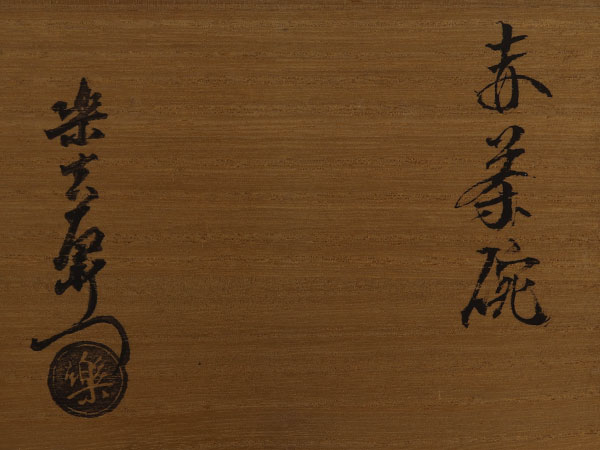 赤茶碗
楽吉左衛門
樂